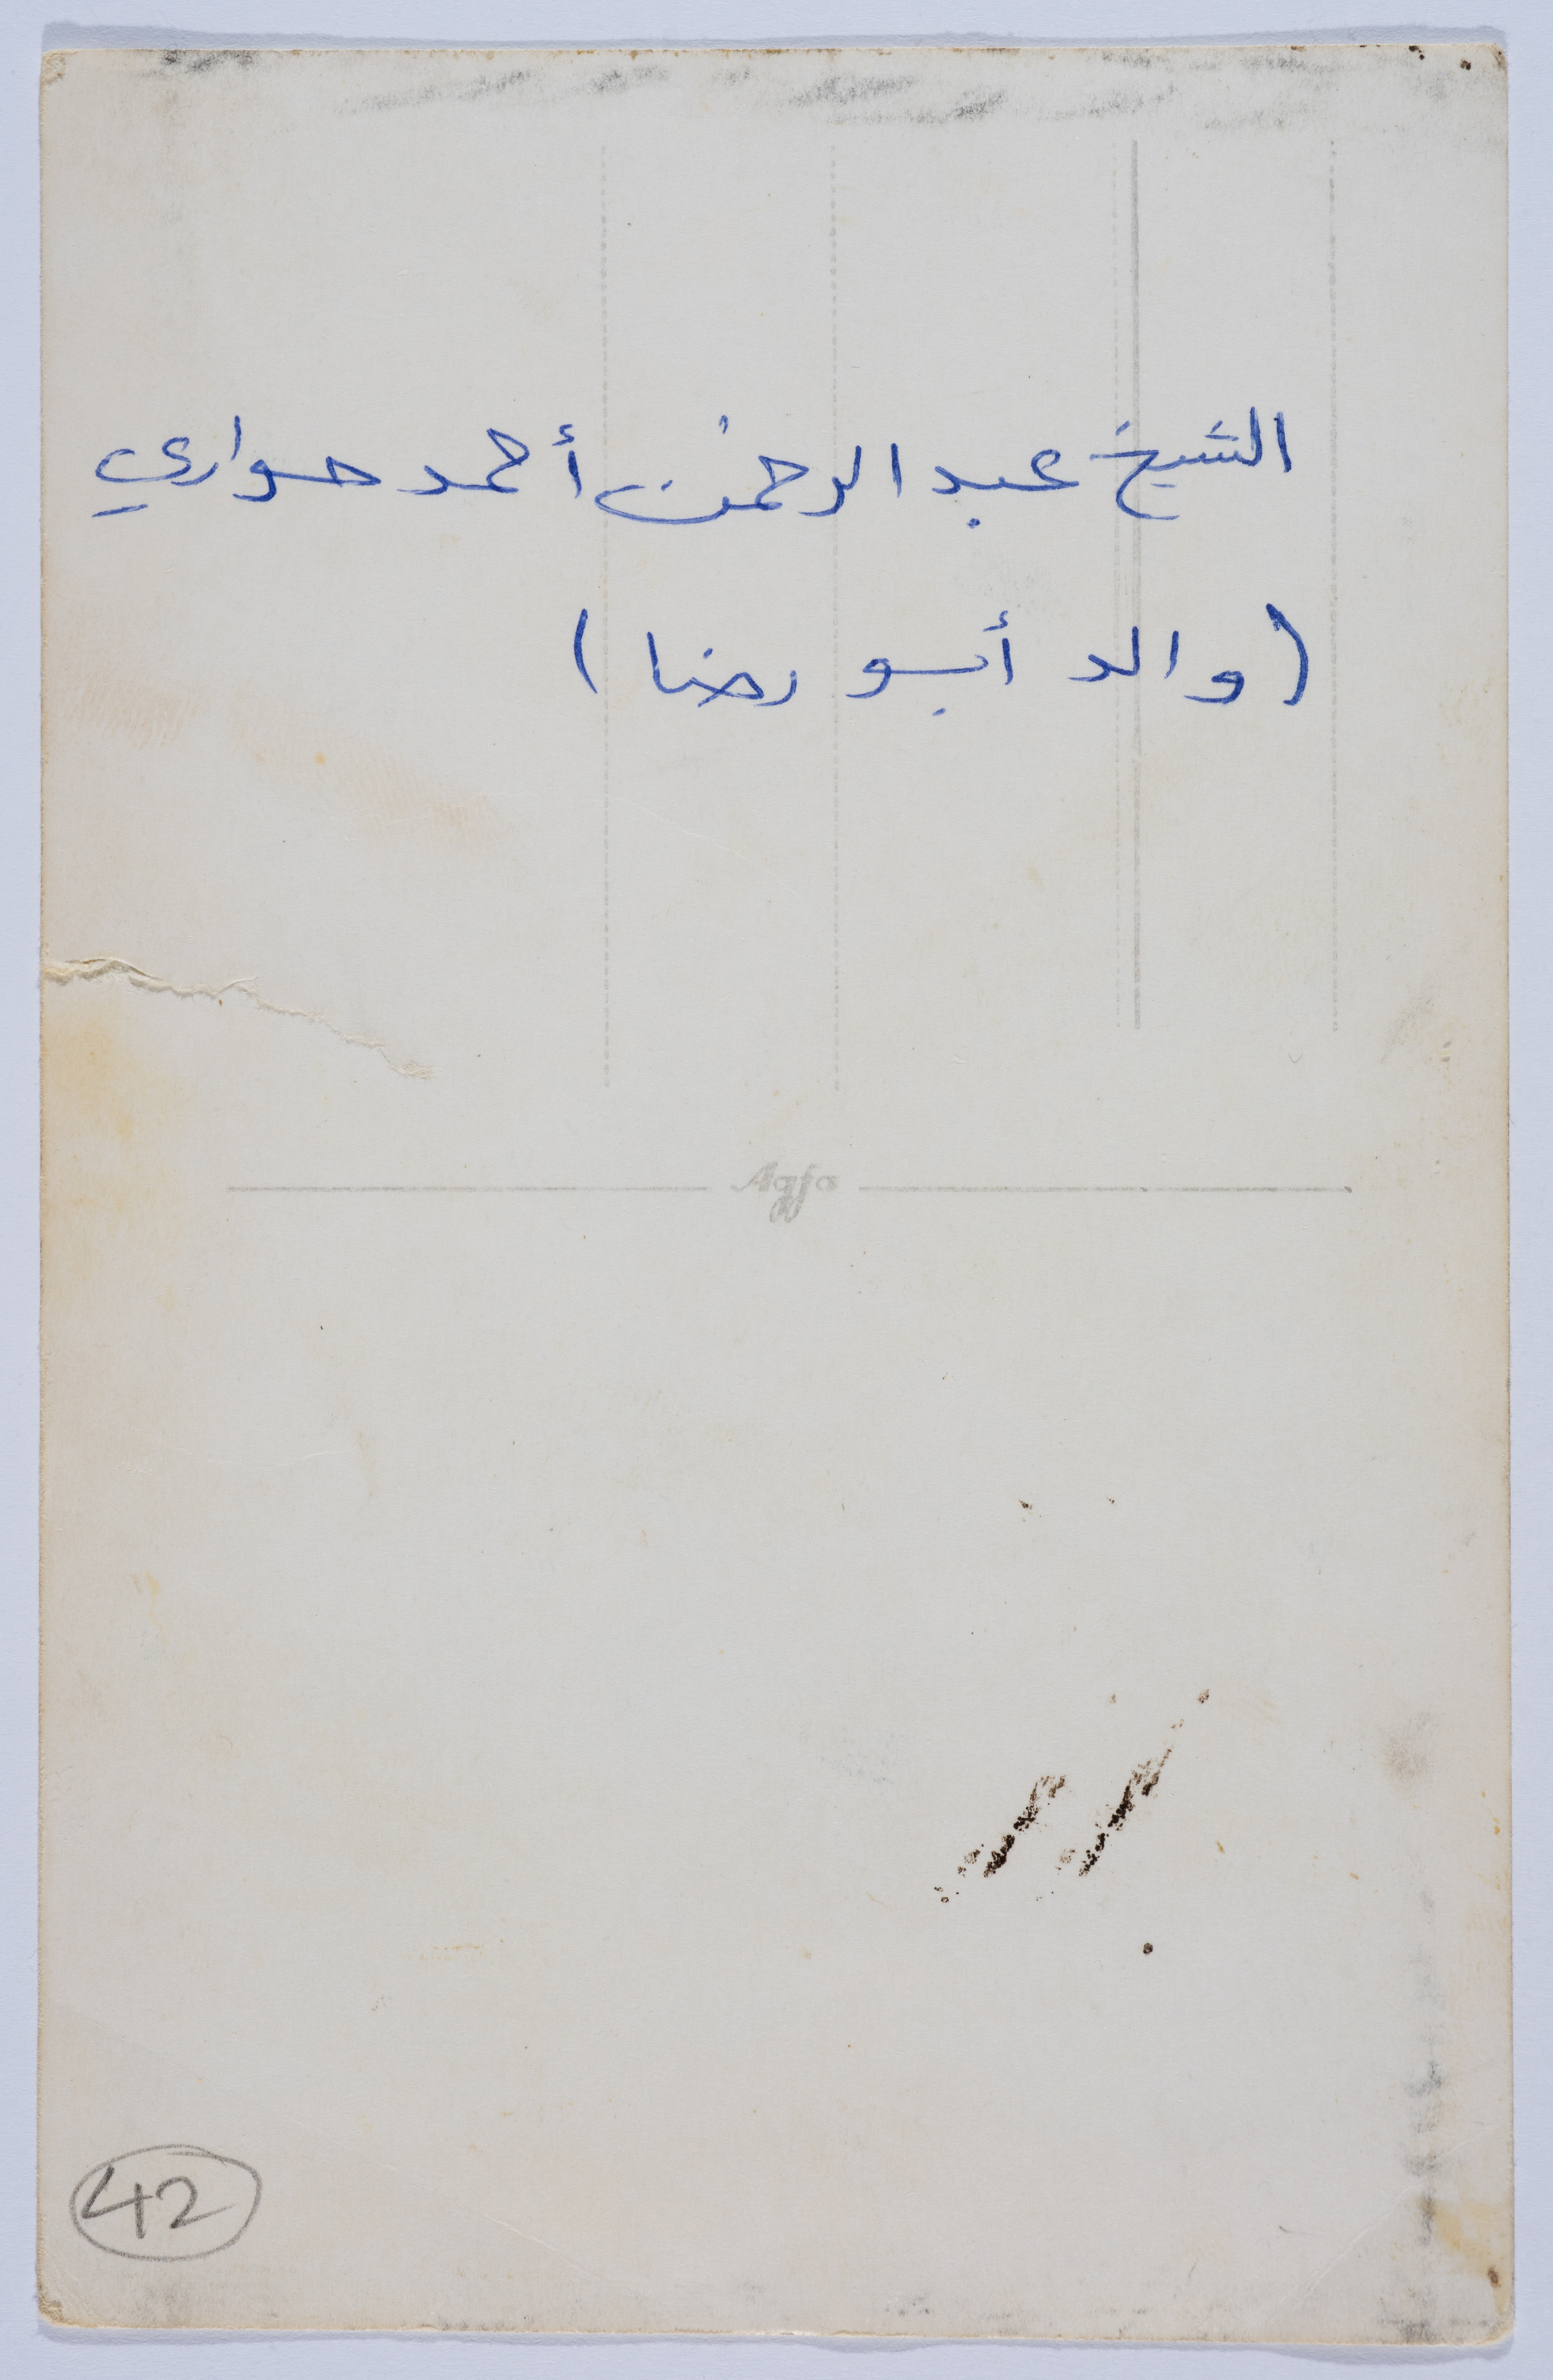 الشيخ عبد الرحمن أحمد حواري
(والد أبو رضا)
Agfa
42